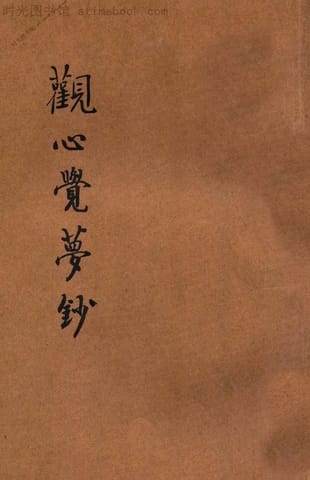 时光图书馆 atimebook.com
觀心覺夢鈔